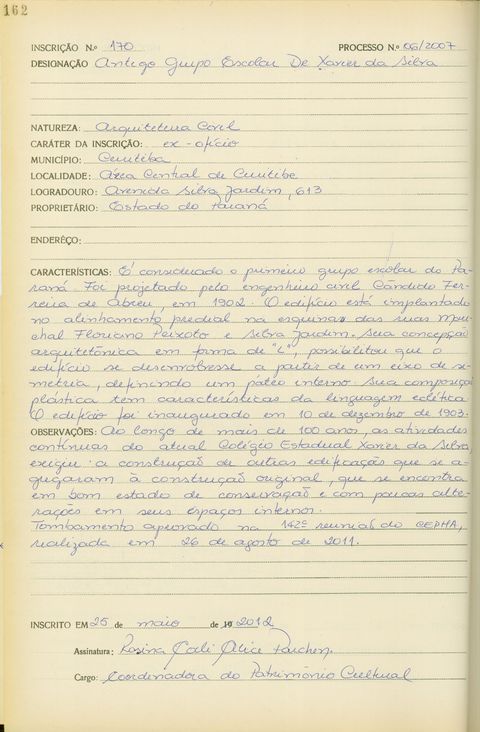 162
INSCRIÇÃO N.º 170 PROCESSO N.º 06/2007
DESIGNAÇÃO Antigo Grupo Escolar De Xavier da Silva
NATUREZA: Arquitetura Civil
CARÁTER DA INSCRIÇÃO: ex-ofício
MUNICÍPIO: Curitiba
LOCALIDADE: Área Central de Curitiba
LOGRADOURO: Avenida Silva Jardim, 613
PROPRIETÁRIO: Estado do Paraná
ENDERÊÇO:
CARACTERÍSTICAS: É considerado o primeiro grupo escolar do Pa-
raná. Foi projetado pelo engenheiro civil Cândido Fer-
reira de Abreu, em 1902. O edifício está implantado
no alinhamento predial na esquina das ruas Mare-
chal Floriano Peixoto e Silva Jardim. Sua concepção
arquitetônica em forma de "L", possibilitou que o
edifício se desenvolvesse a partir de um eixo de si-
metria, definindo um páteo interno. Sua composição
plástica tem características da linguagem eclética.
O edifício foi inaugurado em 10 de dezembro de 1903.
OBSERVAÇÕES: Ao longo de mais de 100 anos, as atividades
contínuas do atual Colégio Estadual Xavier da Silva,
exigiu a construção de outras edificações que se a-
gregaram à construção original, que se encontra
em bom estado de conservação e com poucas alte-
rações em seus espaços internos.
Tombamento aprovado na 142ª reunião do CEPHA,
realizada em 26 de agosto de 2011.
INSCRITO EM 25 de maio de 19 2012
Assinatura: Rosina Alice Parchen
Cargo: Coordenadora do Patrimônio Cultural